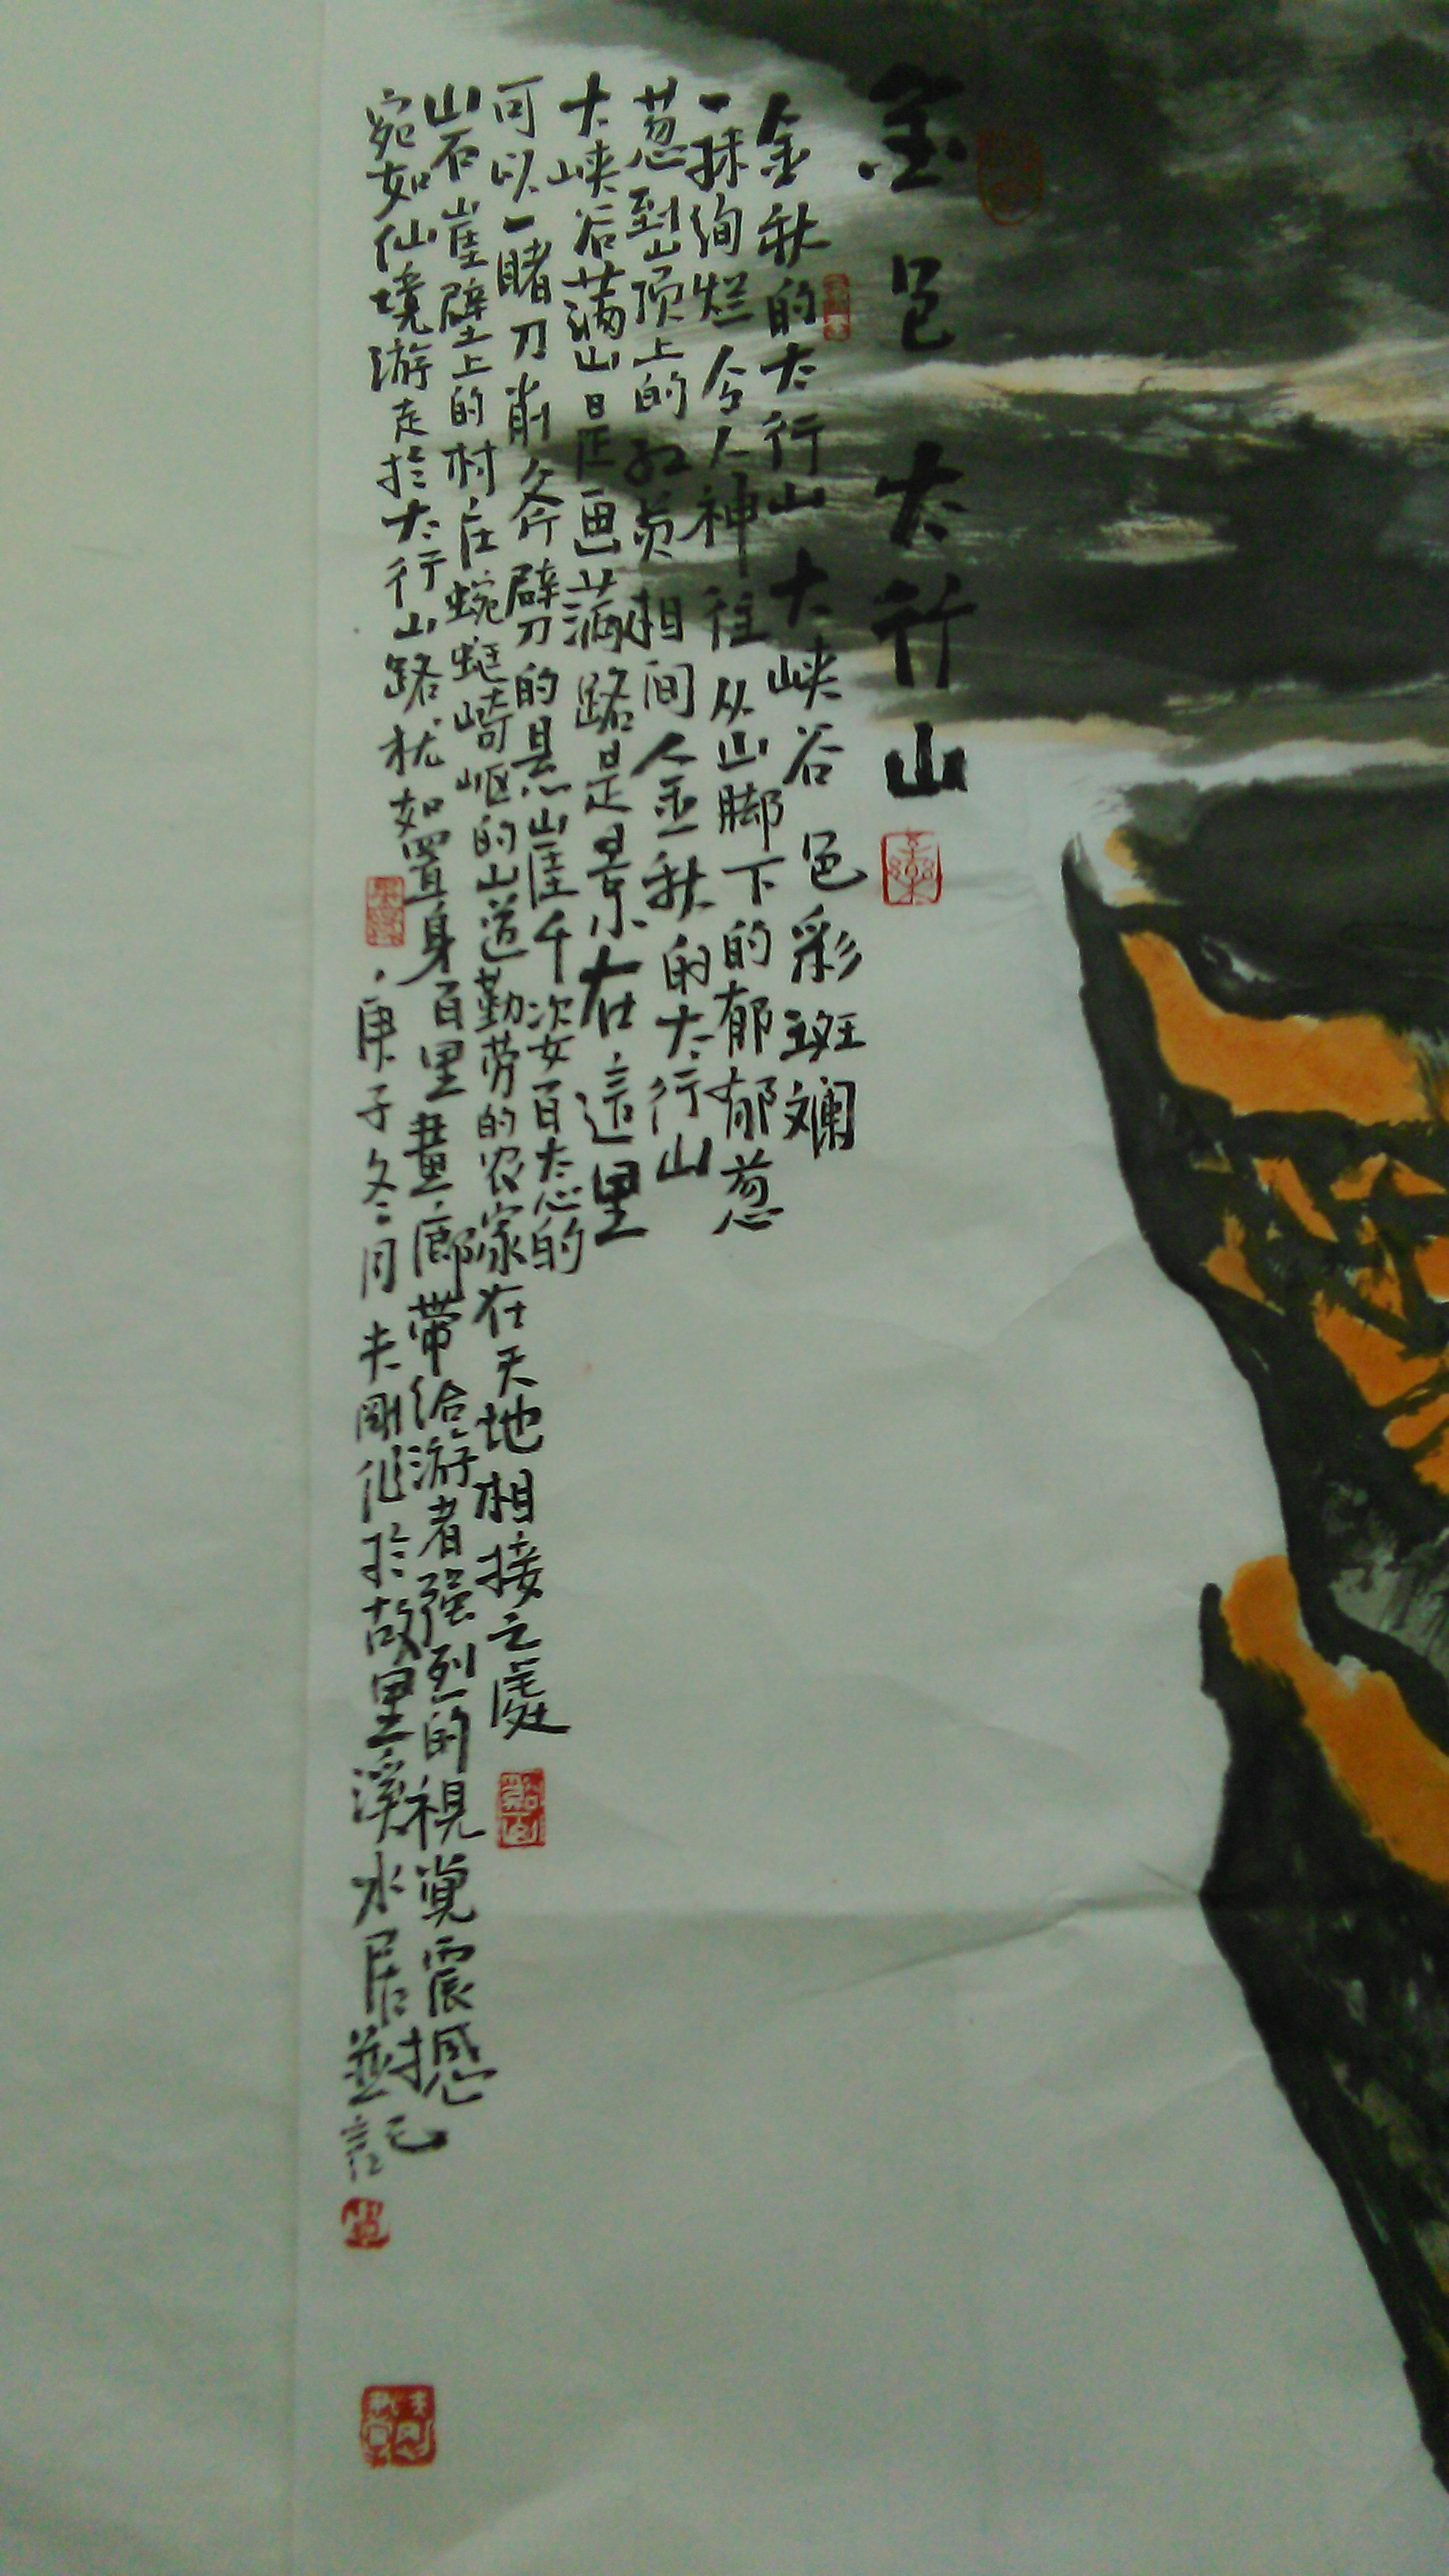 金色太行山
金秋的太行山大峡谷色彩斑斓
一抹绚烂令人神往从山脚下的郁郁葱
葱到山顶上的红黄相间金秋的太行山
大峡谷满山是画满路是景在這里
可以一睹刀削斧劈的悬崖千姿百态的
山石崖壁上的村庄蜿蜒崎岖的山道勤劳的农家在天地相接之處
宛如仙境游走於太行山路就如置身百里畫廊带给游者强烈的視覚震撼
庚子冬月夫剛作於故里溪水居並記